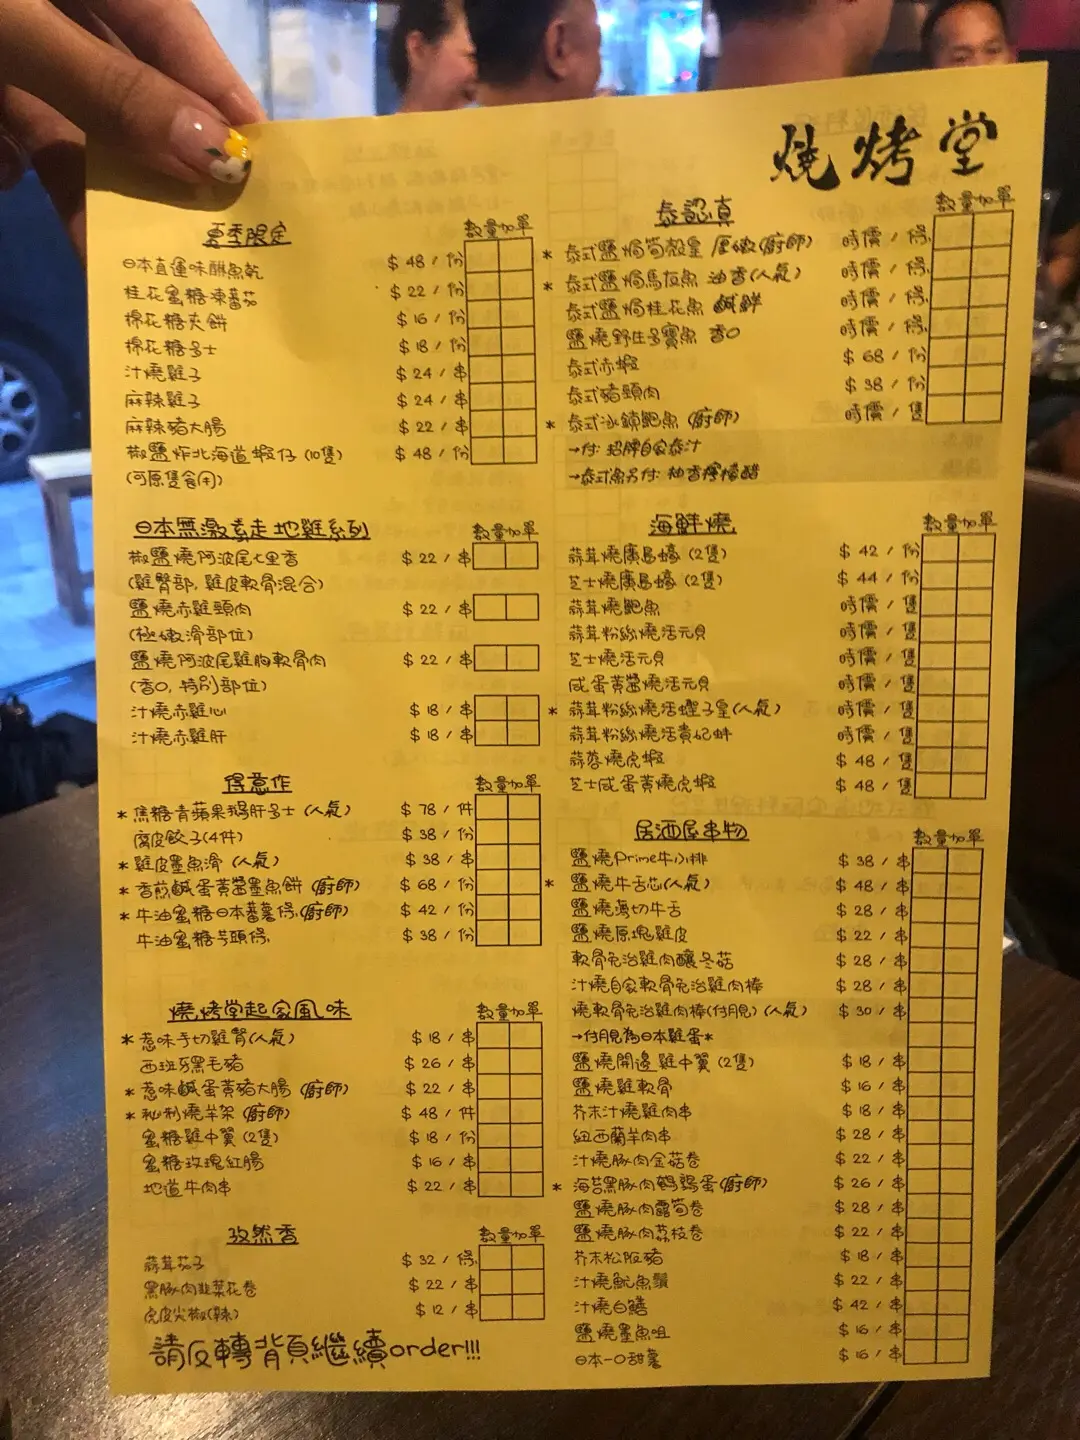 燒烤堂
夏季限定 數量加單
日本直運味醂魚乾 $48/份
桂花蜜糖凍蕃茄 $22/份
棉花糖夾餅 $16/份
棉花糖多士 $18/份
汁燒雞子 $24/串
麻辣雞子 $24/串
麻辣豬大腸 $22/串
椒鹽炸北海道蝦仔(10隻) $48/份
(可原隻食用)
日本無激素走地雞系列 數量加單
椒鹽燒阿波尾七里香 $22/串
(雞臀部,雞皮軟骨混合)
鹽燒赤雞頸肉 $22/串
(極嫩滑部位)
鹽燒阿波尾雞胸軟骨肉 $22/串
(香口,特別部位)
汁燒赤雞心 $18/串
汁燒赤雞肝 $18/串
得意作 數量加單
*焦糖青蘋果鵝肝多士(人氣) $78/件
腐皮餃子(4件) $38/份
*雞皮墨魚滑(人氣) $38/串
*香煎鹹蛋黃醬墨魚餅(廚師) $68/份
*牛油蜜糖日本蕃薯條(廚師) $42/份
牛油蜜糖芋頭條 $38/份
燒烤堂起家風味 數量加單
*惹味手切雞腎(人氣) $18/串
西班牙黑毛豬 $26/串
*惹味鹹蛋黃豬大腸(廚師) $22/串
*秘制燒羊架(廚師) $48/件
蜜糖雞中翼(2隻) $18/份
蜜糖玫瑰紅腸 $16/串
地道牛肉串 $22/串
孜然香 數量加單
蒜茸茄子 $32/條
黑豚肉韮菜花卷 $22/串
虎皮尖椒(辣) $12/串
請反轉背頁繼續order!!!
泰認真 數量加單
*泰式鹽焗筍殼皇 厚嫩(廚師) 時價/條
*泰式鹽焗馬友魚 油香(人氣) 時價/條
泰式鹽焗桂花魚 鹹鮮 時價/條
鹽燒野生多寶魚 香口 時價/條
泰式赤蝦 $68/份
泰式豬頸肉 $38/份
*泰式冰鎮鮑魚(廚師) 時價/隻
→付:招牌自家泰汁
→泰式魚另付:柚香檸檬醋
海鮮燒 數量加單
蒜茸燒廣島蠔(2隻) $42/份
芝士燒廣島蠔(2隻) $44/份
蒜茸燒鮑魚 時價/隻
蒜茸粉絲燒活元貝 時價/隻
芝士燒活元貝 時價/隻
咸蛋黃醬燒活元貝 時價/隻
*蒜茸粉絲燒活蟶子皇(人氣) 時價/隻
蒜茸粉絲燒活貴妃蚌 時價/隻
蒜蓉燒虎蝦 $48/隻
芝士咸蛋黃燒虎蝦 $48/隻
居酒屋串物 數量加單
鹽燒Prime牛小排 $38/串
*鹽燒牛舌芯(人氣) $48/串
鹽燒薄切牛舌 $28/串
鹽燒原塊雞皮 $22/串
軟骨免治雞肉釀冬菇 $28/串
汁燒自家軟骨免治雞肉棒 $28/串
燒軟骨免治雞肉棒(付月見)(人氣) $30/串
→付月見為日本雞蛋*
鹽燒開邊雞中翼(2隻) $18/串
鹽燒雞軟骨 $16/串
芥末汁燒雞肉串 $18/串
紐西蘭羊肉串 $28/串
汁燒豚肉金菇卷 $22/串
*海苔黑豚肉鵪鶉蛋(廚師) $26/串
鹽燒豚肉露筍卷 $28/串
鹽燒豚肉荔枝卷 $22/串
芥末松阪豬 $18/串
汁燒魷魚鬚 $22/串
汁燒白鱔 $42/串
鹽燒墨魚咀 $16/串
日本一口甜薯 $16/串